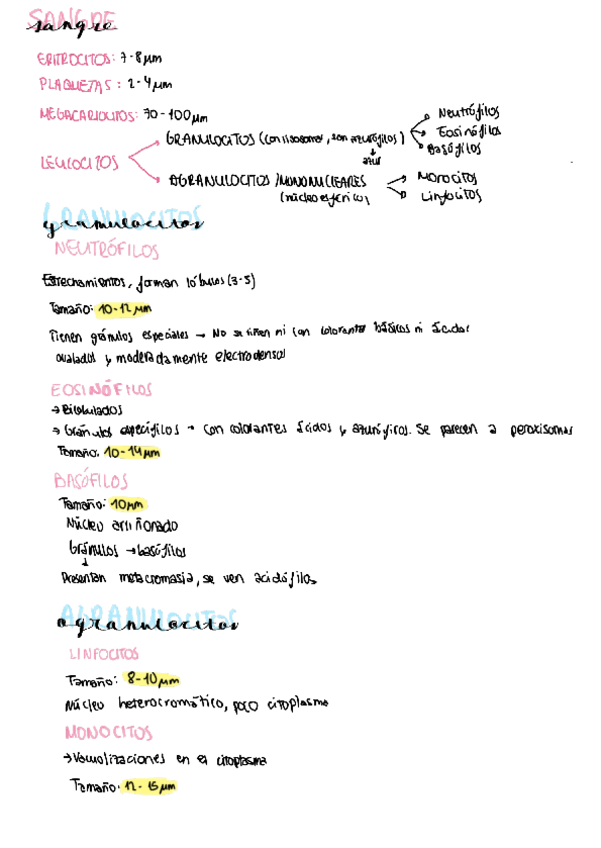 SANGRE
sangre
ERITROCITOS: 7-8 μm
PLAQUETAS: 2-4 μm
MEGACARIOCITOS: 70-100 μm
LEUCOCITOS
GRANULOCITOS (con lisosomas, son azurófilos)
azul
Neutrófilos
Eosinófilos
Basófilos
AGRANULOCITOS / MONONUCLEARES
(núcleo esférico)
Monocitos
Linfocitos
GRANULOCITOS
granulocitos
NEUTRÓFILOS
Estrechamientos, forman lóbulos (3-5)
Tamaño: 10-12 μm
Tienen gránulos especiales → No se tiñen ni con colorantes básicos ni ácidos
ovalados y moderadamente electrodensos
EOSINÓFILOS
→ Bilobulados
→ Gránulos específicos → con colorantes ácidos y azurófilos. Se parecen a peroxisomas
Tamaño: 10-14 μm
BASÓFILOS
Tamaño: 10 μm
Núcleo arriñonado
Gránulos → basófilos
↓
Presentan metacromasia, se ven acidófilos
AGRANULOCITOS
agranulocitos
LINFOCITOS
Tamaño: 8-10 μm
Núcleo heterocromático, poco citoplasma
MONOCITOS
→ Vacuolizaciones en el citoplasma
Tamaño: 12-15 μm